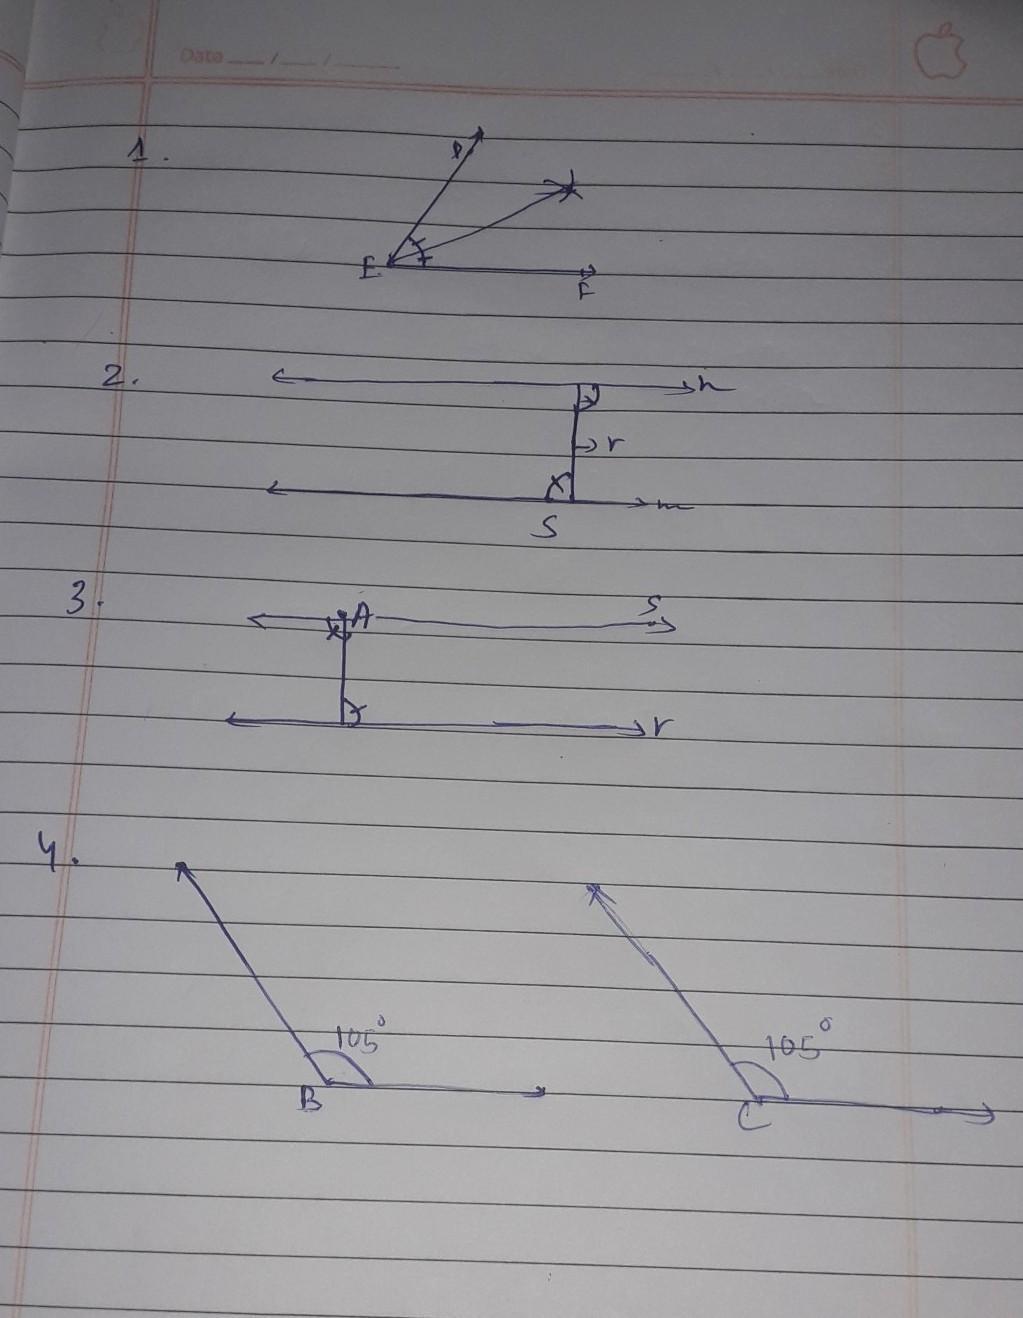 Date __/__/____
1.
D
E
F
2.
n
r
m
S
3.
A
S
r
4.
105°
B
105°
C